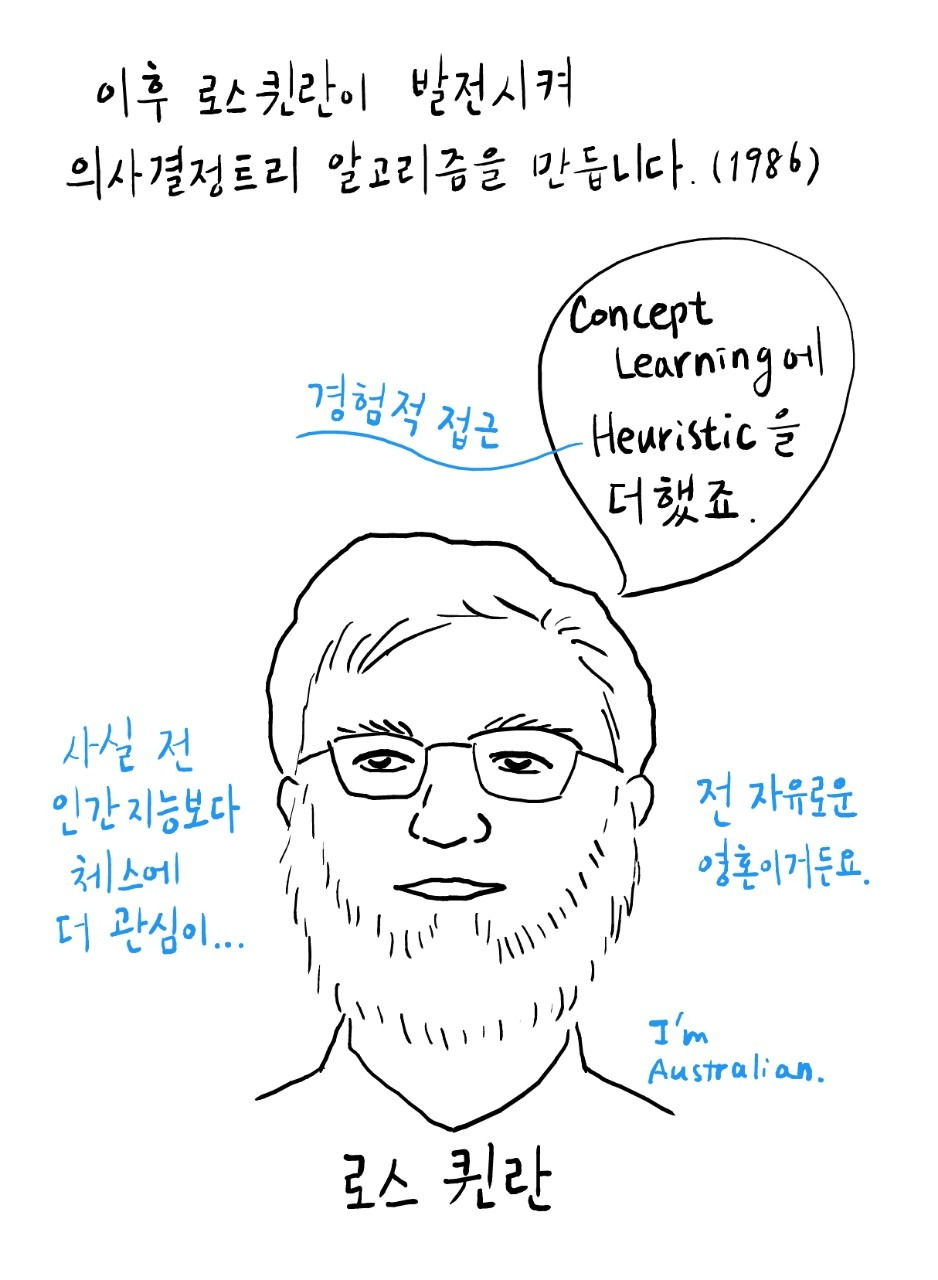 이후 로스퀸란이 발전시켜
의사결정트리 알고리즘을 만듭니다. (1986)
Concept
Learning에
Heuristic을
더했죠.
경험적 접근
사실 전
인간지능보다
체스에
더 관심이...
전 자유로운
영혼이거든요.
I'm
Australian.
로스 퀸란